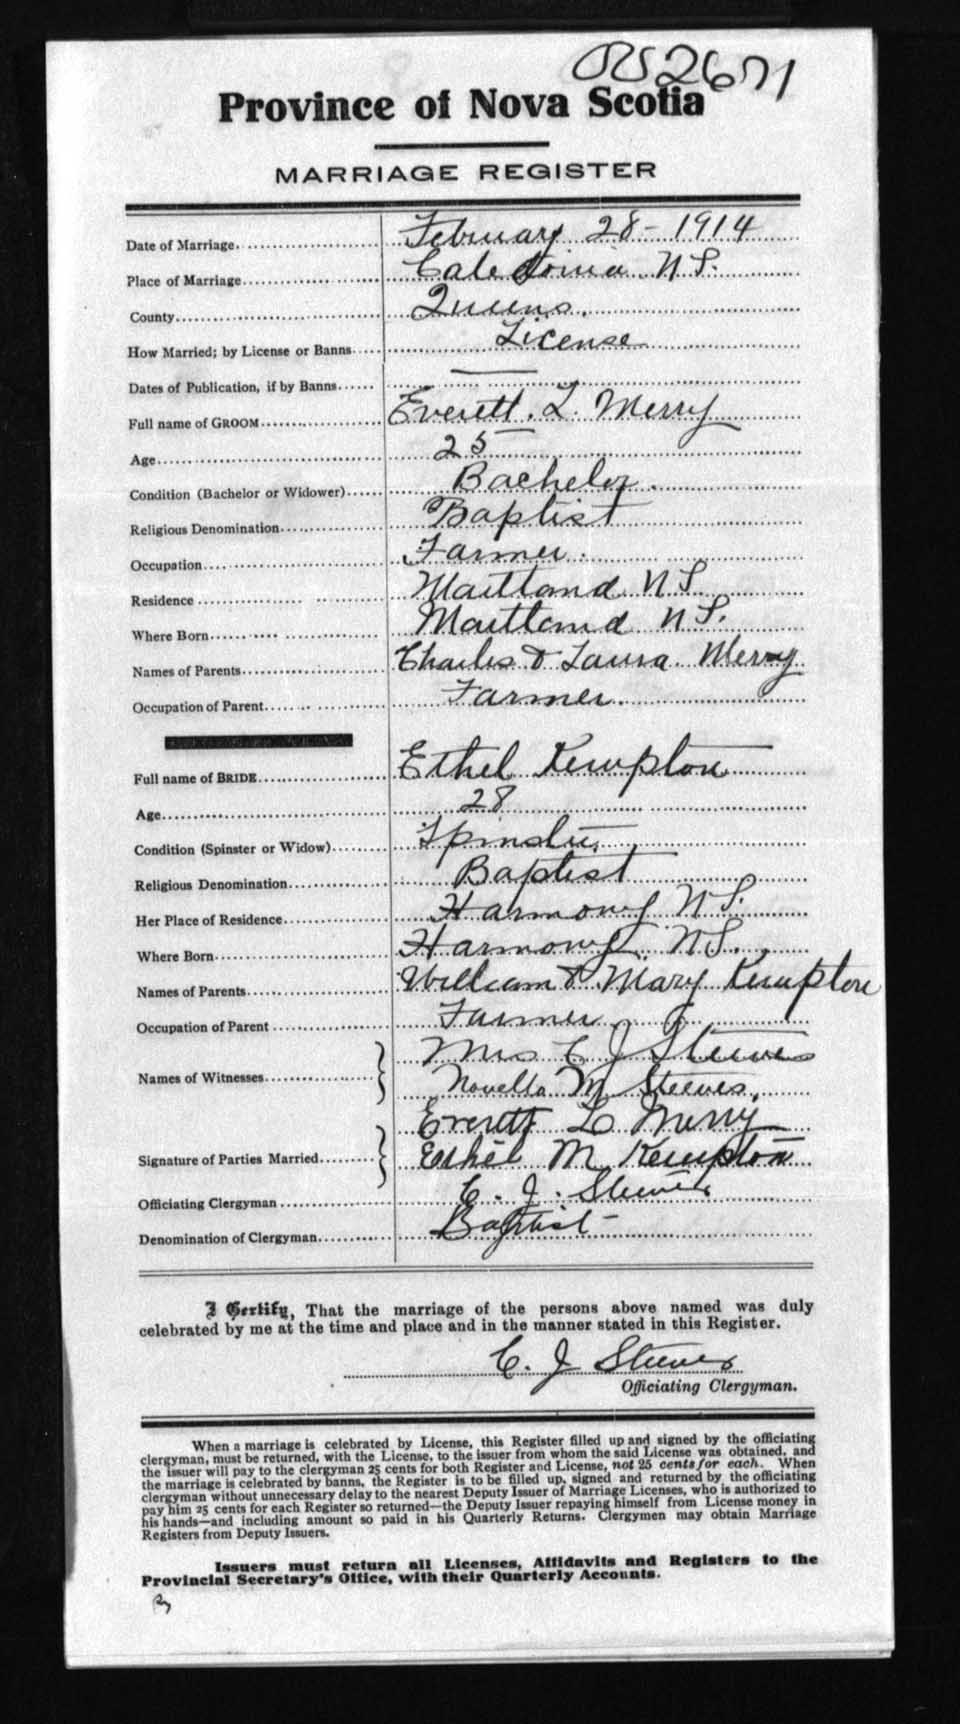 2671
Province of Nova Scotia
MARRIAGE REGISTER
Date of Marriage. February 28 - 1914
Place of Marriage Caledonia N.S.
County Queens.
How Married; by License or Banns License
Dates of Publication, if by Banns —
Full name of GROOM Everett. L. Merry
Age 25
Condition (Bachelor or Widower) Bachelor.
Religious Denomination Baptist
Occupation Farmer.
Residence Maitland N.S.
Where Born Maitland N.S.
Names of Parents Charles & Laura. Merry
Occupation of Parent Farmer.
Full name of BRIDE Ethel Kempton
Age 28
Condition (Spinster or Widow) Spinster
Religious Denomination Baptist
Her Place of Residence Harmony N.S.
Where Born Harmony. N.S.
Names of Parents William & Mary Kempton
Occupation of Parent Farmer
Names of Witnesses Mrs C J Steeves
Novella M Steeves.
Everett L Merry
Signature of Parties Married Ethel M Kempton
Officiating Clergyman C. J. Steeves
Denomination of Clergyman Baptist -
I Certify, That the marriage of the persons above named was duly
celebrated by me at the time and place and in the manner stated in this Register.
C. J Steeves
Officiating Clergyman.
When a marriage is celebrated by License, this Register filled up and signed by the officiating
clergyman, must be returned, with the License, to the issuer from whom the said License was obtained, and
the issuer will pay to the clergyman 25 cents for both Register and License, not 25 cents for each. When
the marriage is celebrated by banns, the Register is to be filled up, signed and returned by the officiating
clergyman without unnecessary delay to the nearest Deputy Issuer of Marriage Licenses, who is authorized to
pay him 25 cents for each Register so returned—the Deputy Issuer repaying himself from License money in
his hands—and including amount so paid in his Quarterly Returns. Clergymen may obtain Marriage
Registers from Deputy Issuers.
Issuers must return all Licenses, Affidavits and Registers to the
Provincial Secretary's Office, with their Quarterly Accounts.